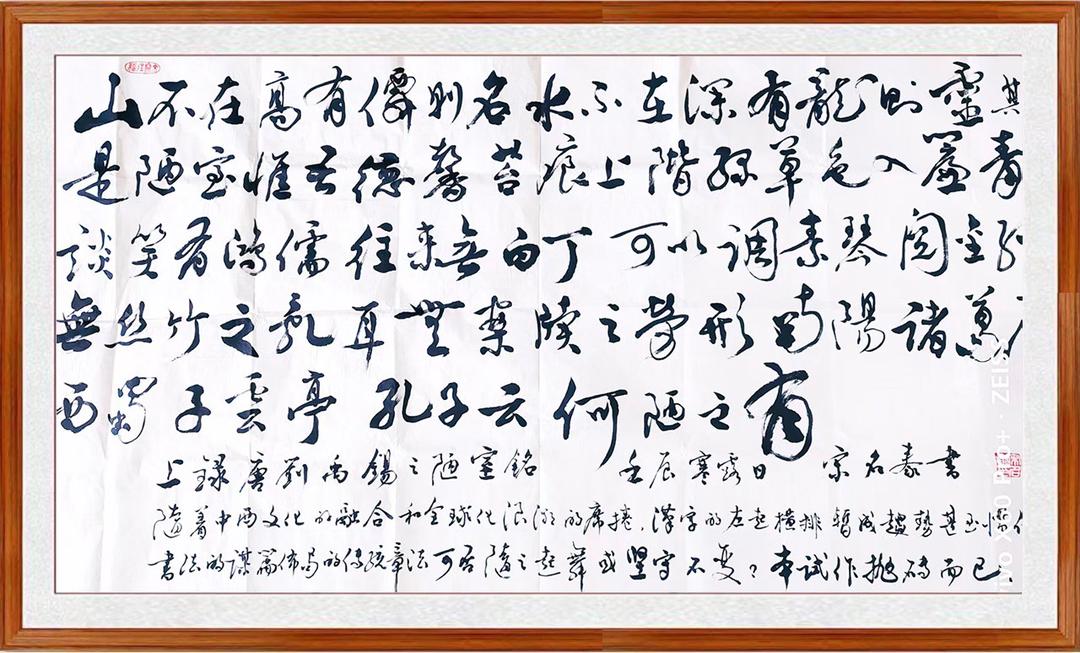 山不在高有僊則名水不在深有龍則靈其
是陋室惟吾德馨苔痕上階緑草色入簾青
談笑有鴻儒往來無白丁可以調素琴閱金
無丝竹之亂耳無案牘之劳形南陽諸葛
西蜀子雲亭孔子云何陋之有
上録唐劉禹錫之陋室銘 壬辰寒露日 宗名泰書
隨着中西文化的融合和全球化浪潮的席捲漢字的左起橫排暫成趨勢甚
書法的謀篇佈局的传统章法可否隨之起舞或坚守不变？本試作抛磚而已
VIVO X90 PRO+ · ZEISS